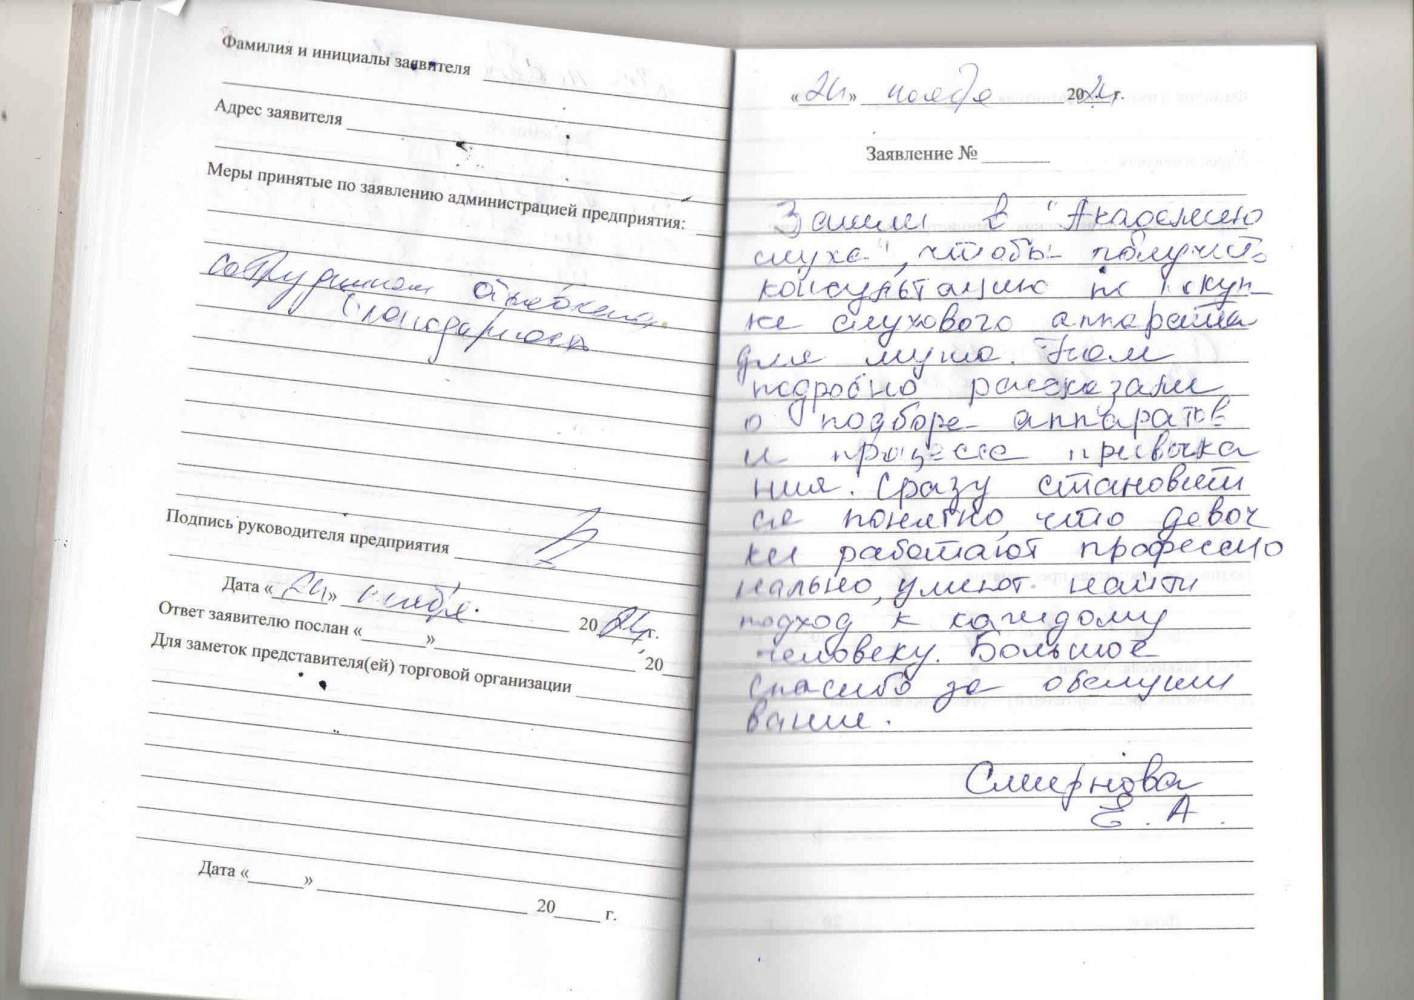 Фамилия и инициалы заявителя
Адрес заявителя
Меры принятые по заявлению администрацией предприятия:
сотрудникам объявлена
благодарность
Подпись руководителя предприятия
Дата « 21 » ноября 2021 г.
Ответ заявителю послан «______»____________ 20__
Для заметок представителя(ей) торговой организации
Дата «______» ____________ 20_____ г.
« 21 » ноября 2021 г.
Заявление № _______
Зашли в "Академию
слуха", чтобы получить
консультацию по покуп
ке слухового аппарата
для мужа. Нам
подробно рассказали
о подборе аппаратов
и процессе привыка
ния. Сразу становит
ся понятно, что девоч
ки работают профессио
нально, умеют найти
подход к каждому
человеку. Большое
спасибо за обслужи
вание.
Смирнова
Е. А.